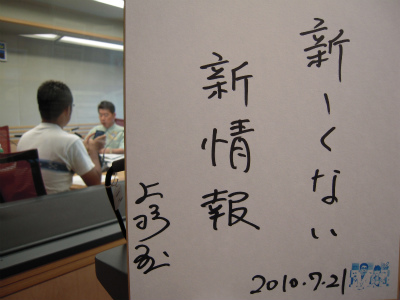 新しくない
新情報
2010.7.21